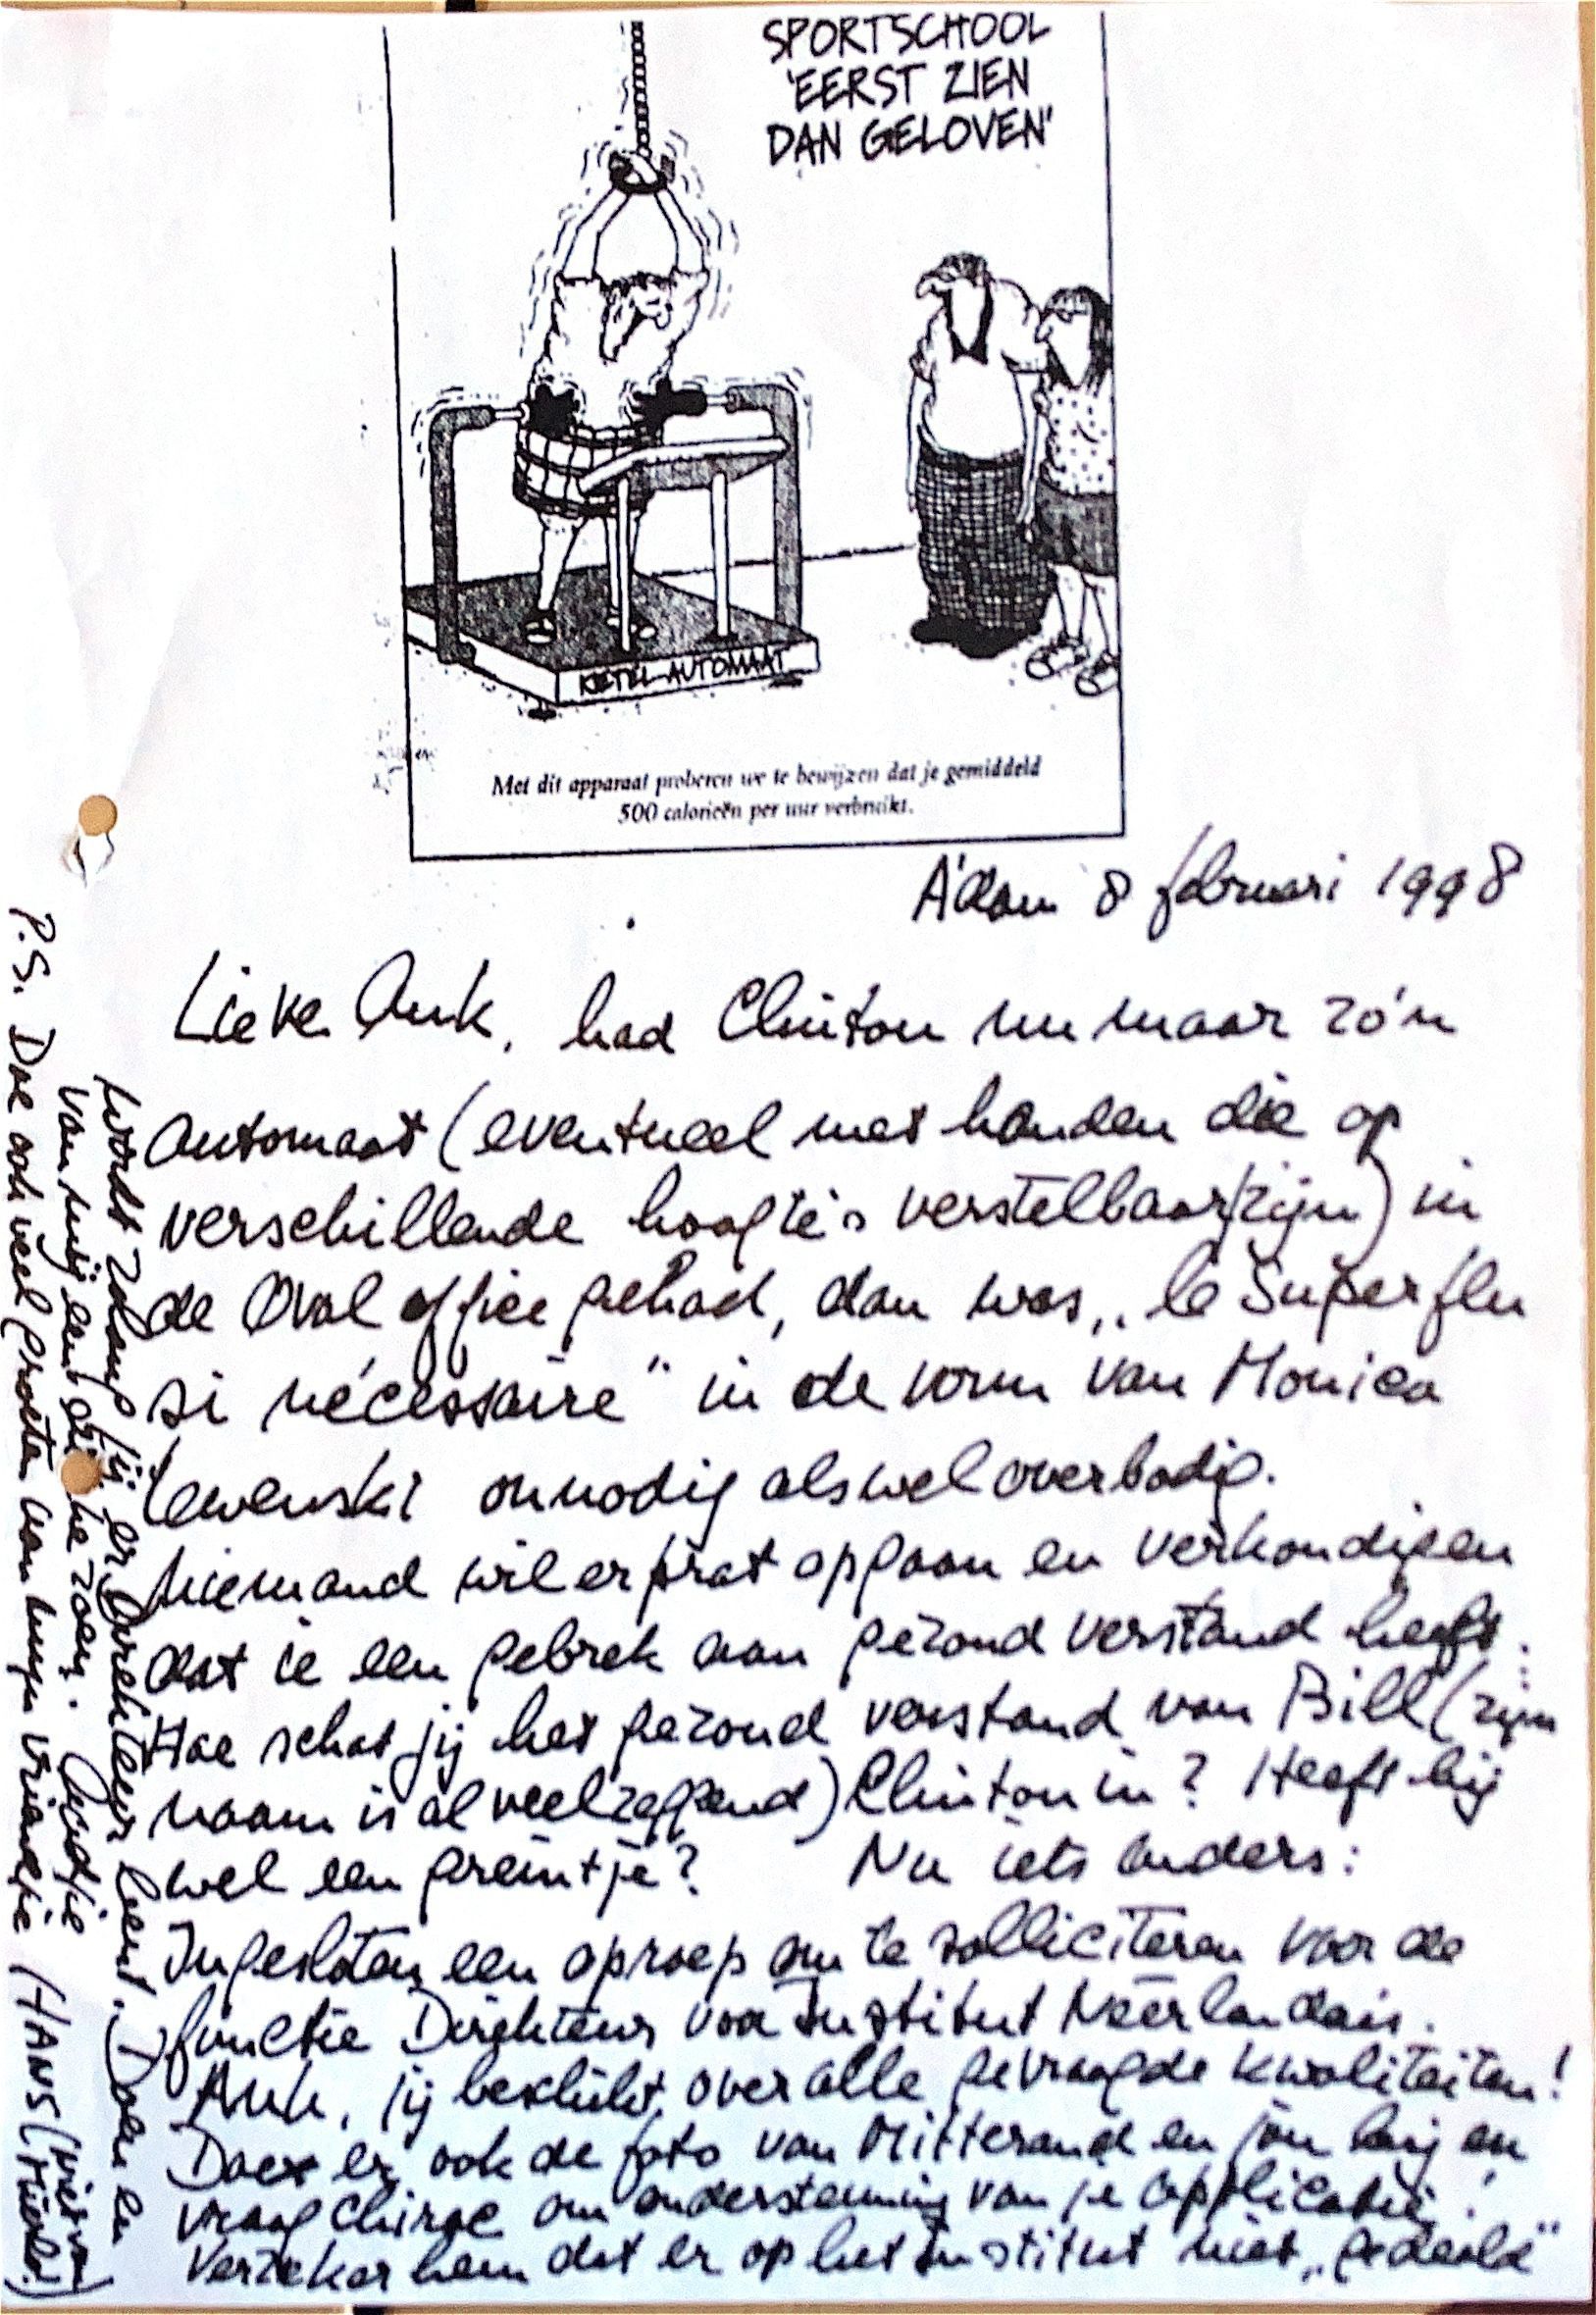 SPORTSCHOOL
'EERST ZIEN
DAN GELOVEN'
KIETEL-AUTOMAAT
Met dit apparaat proberen we te bewijzen dat je gemiddeld
500 calorieën per uur verbruikt.
A'dam 8 februari 1998
Lieve Auk, had Clinton nu maar zo'n
automaat (eventueel met handen die op
verschillende hoogte's verstelbaar zijn) in
de Oval office gehad, dan was „le Superflu
si nécessaire" in de vorm van Monica
Lewenski onnodig alswel overbodig.
Niemand wil er prat opgaan en verkondigen
dat ie een gebrek aan gezond verstand heeft.
Hoe schat jij het gezond verstand van Bill (zijn
naam is al veelzeggend) Clinton in? Heeft hij
wel een greintje? Nu iets anders:
Ingesloten een oproep om te solliciteren voor de
functie Direkteur voor Institut Néerlandais.
Auk, jij beschikt over alle gevraagde kwaliteiten!
Doe er ook de foto van Mitterand en jou bij en
vraag Chirac om ondersteuning van je applicatie!
Verzeker hem dat er op het Institut niet „gedeald"
wordt zolang jij er Direkteur bent. Doei en
van mij een dikke zoen.
P.S. Doe ook veel groeten aan mijn vriendje (HANS (niet van Mierlo)